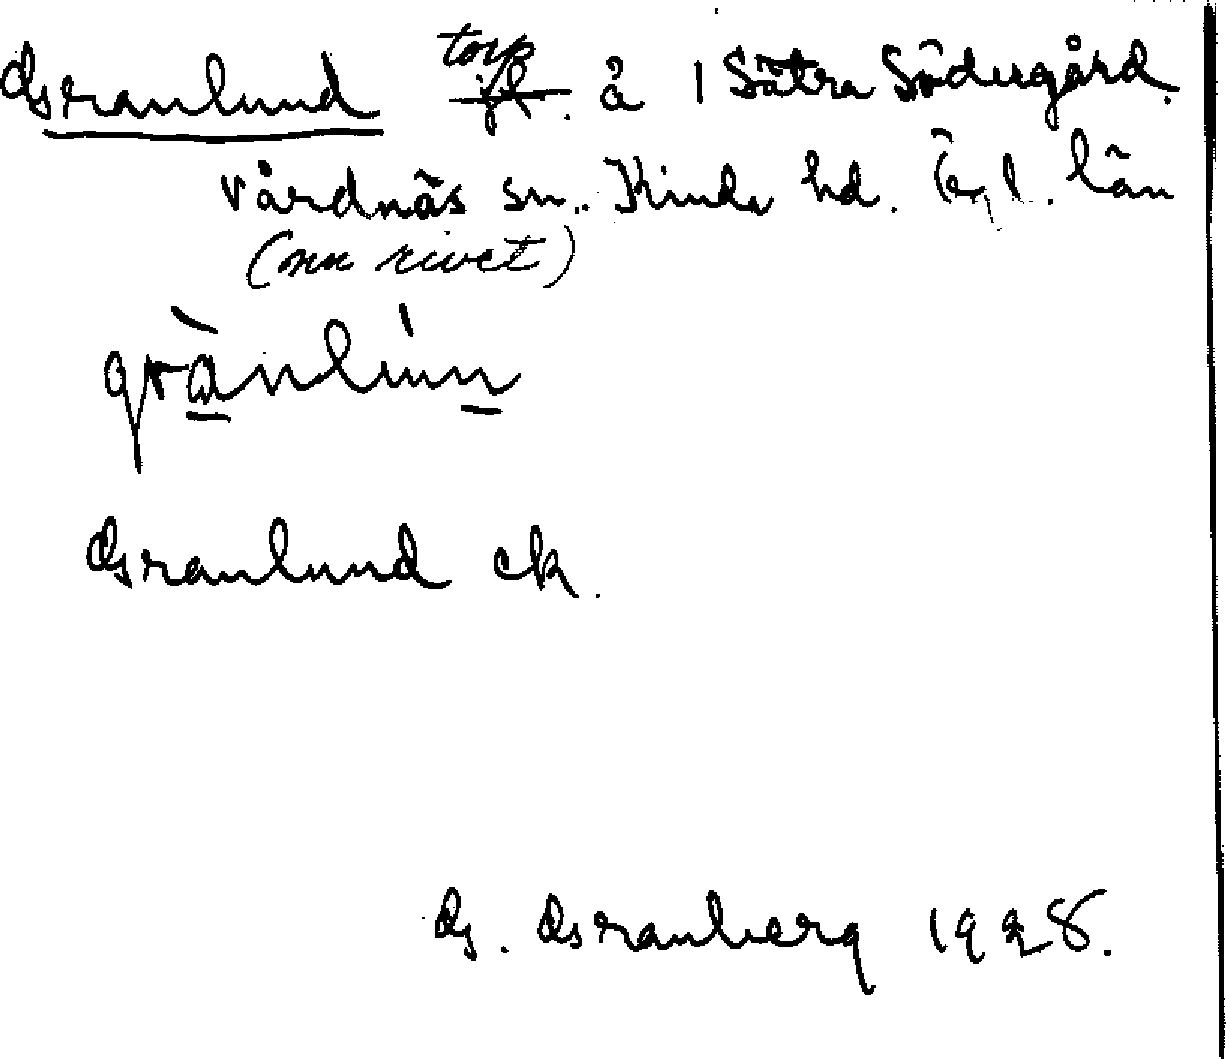 Granlund torp å 1 Sätra Södergård.
Vårdnäs sn. Kinda hd. Ögl. län
(nu rivet)
grànlúnn
Granlund ek.
G. Granberg 1928.